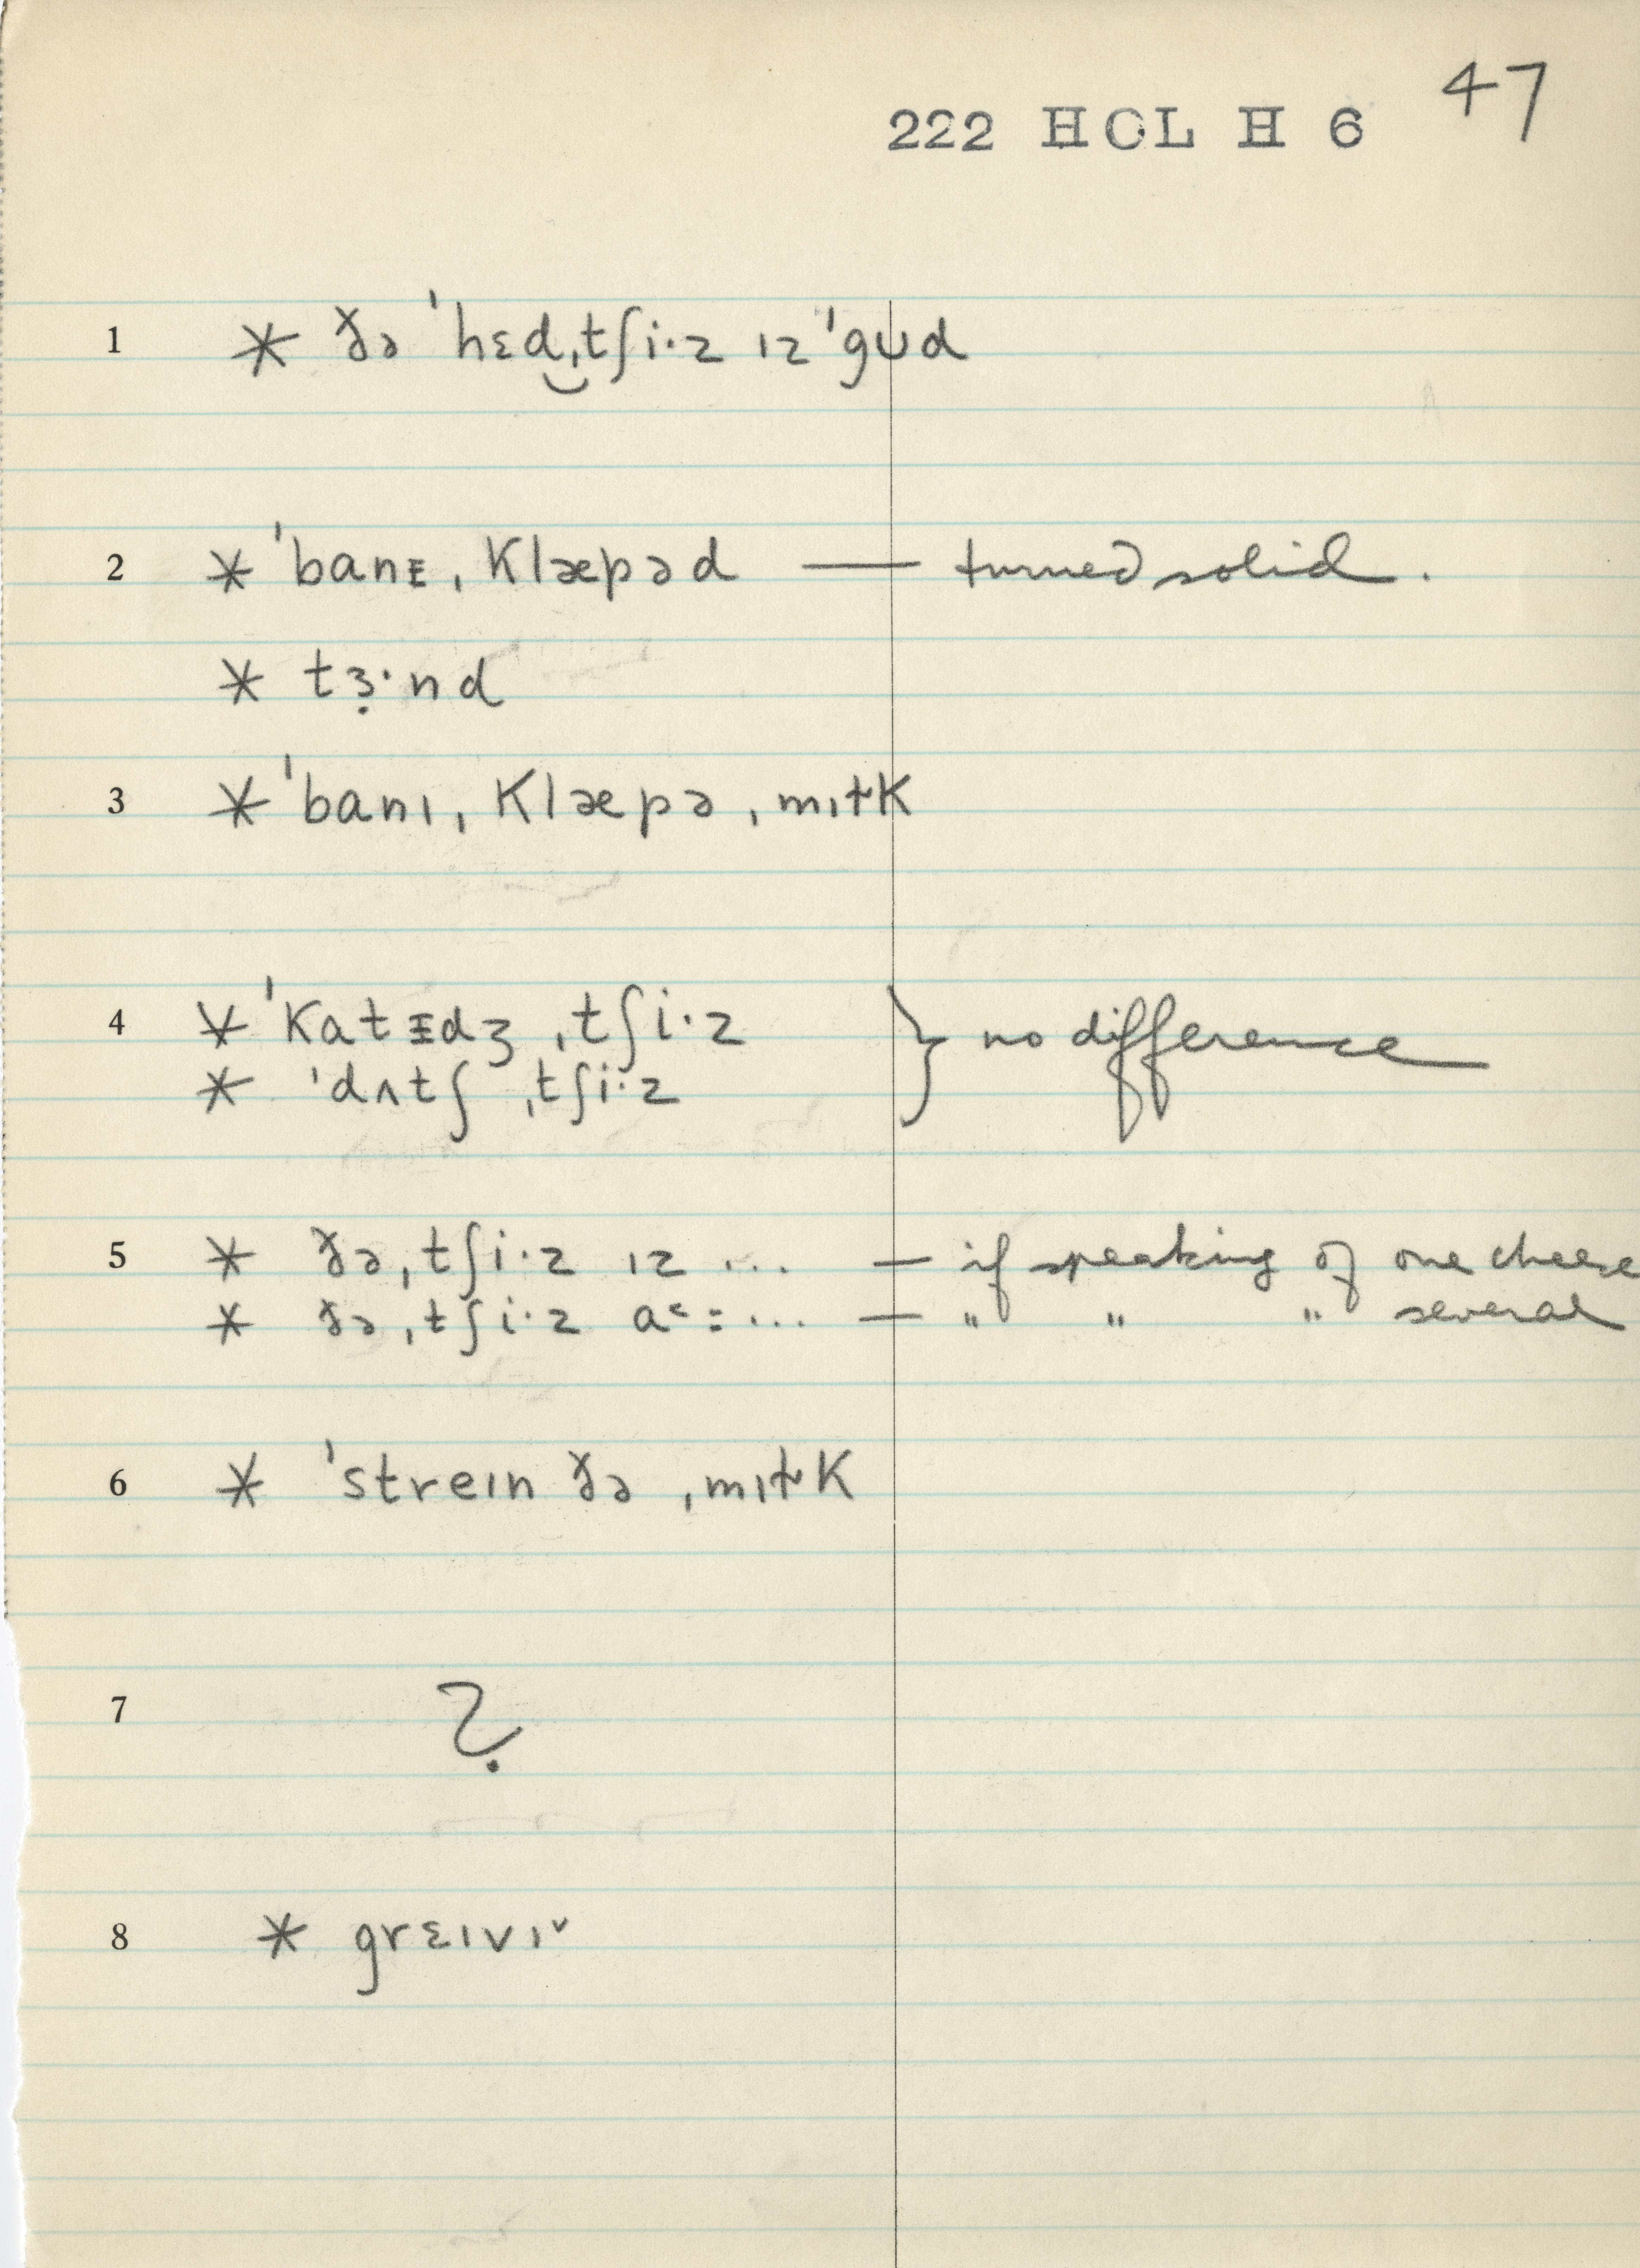 222 HCL H 6 47
1 * ðə ˈhɛd͜ˌtʃi·z ɪz ˈgʊd
2 * ˈbanᵻˌklæpəd — turned solid.
* tɜ̣·nd
3 * ˈbanɪˌklæpəˌmɪɫk
4 * ˈkatᵻdʒ ˌtʃi·z } no difference
* ˈdʌtʃ ˌtʃi·z
5 * ðə ˌtʃi·z ɪz ... — if speaking of one cheese
* ðə ˌtʃi·z a˂: ... — " " " several
6 * ˈstreɪn ðə ˌmɪɫk
7 ?
8 * grɛɪvɪˇ